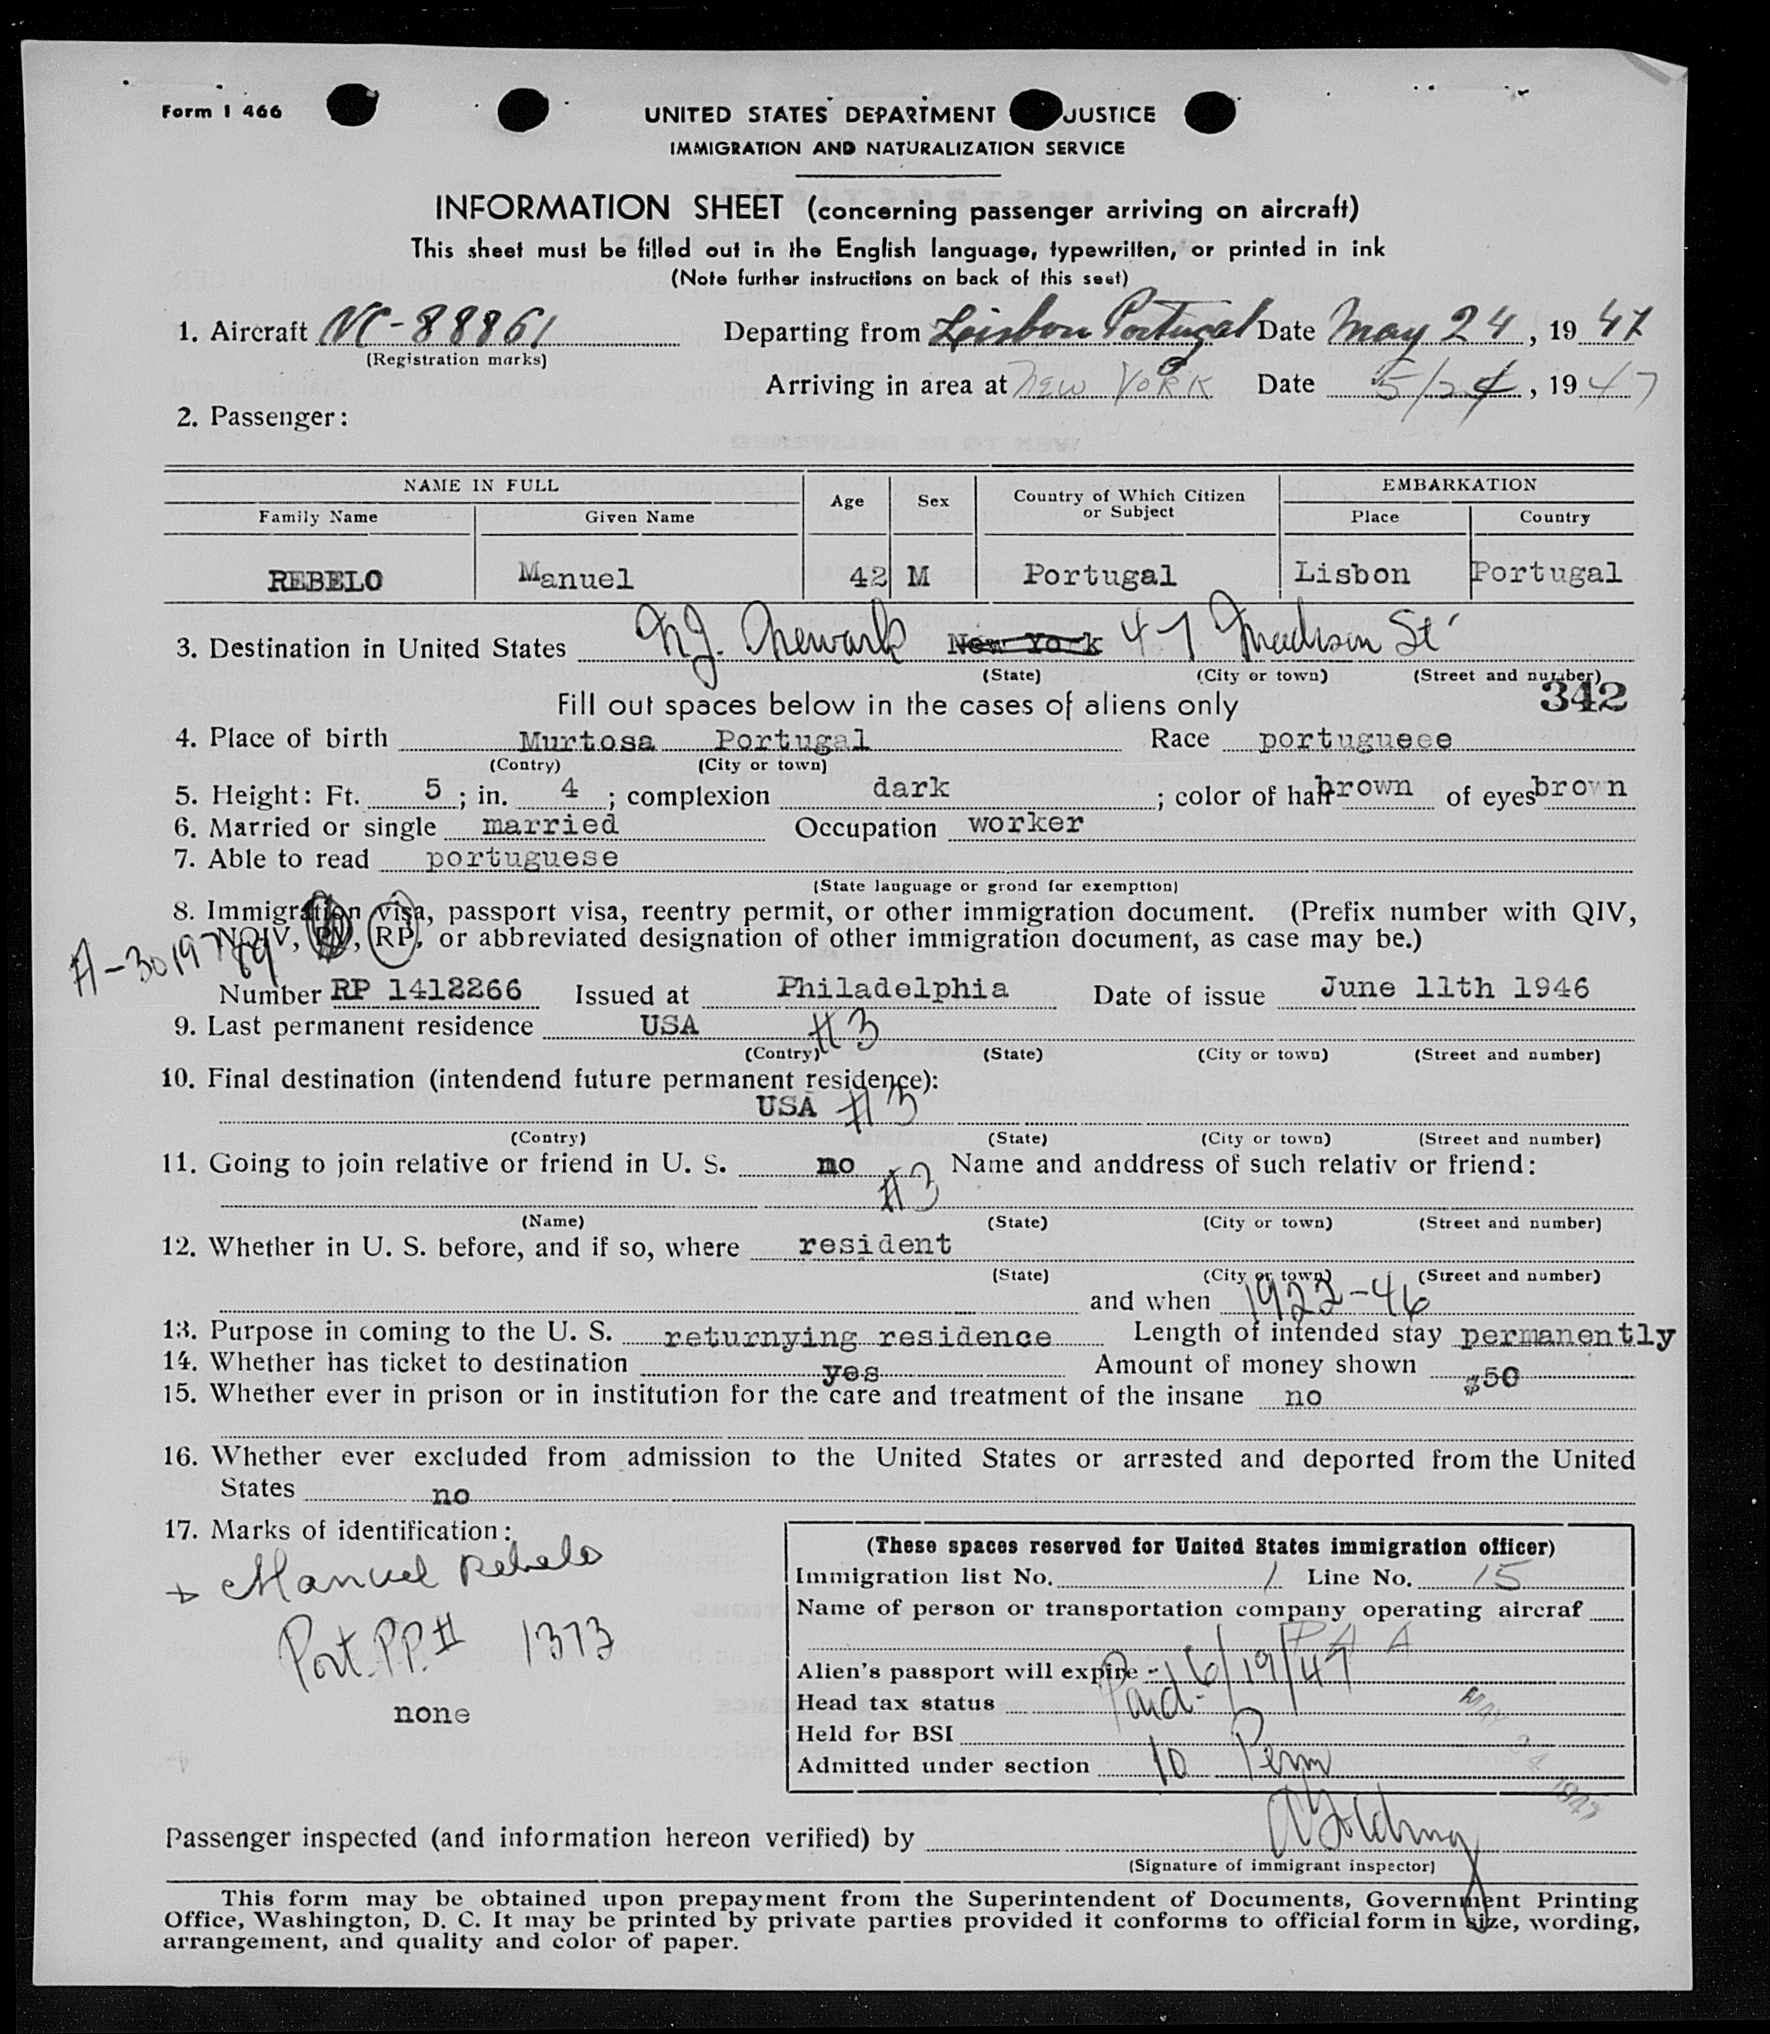 Form I 466
UNITED STATES DEPARTMENT JUSTICE
IMMIGRATION AND NATURALIZATION SERVICE
INFORMATION SHEET (concerning passenger arriving on aircraft)
This sheet must be filled out in the English language, typewritten, or printed in ink
(Note further instructions on back of this seet)
1. Aircraft NC-88861 Departing from Lisbon Portugal Date May 24, 1947
(Registration marks)
Arriving in area at NEW YORK Date 5/24, 1947
2. Passenger:
NAME IN FULL Age Sex Country of Which Citizen or Subject EMBARKATION
Family Name Given Name Place Country
REBELO Manuel 42 M Portugal Lisbon Portugal
3. Destination in United States NJ. Newark New York 47 Madison St
(State) (City or town) (Street and number)
342
Fill out spaces below in the cases of aliens only
4. Place of birth Murtosa Portugal Race portuguece
(Contry) (City or town)
5. Height: Ft. 5; in. 4; complexion dark; color of hair brown of eyes brown
6. Married or single married Occupation worker
7. Able to read portuguese
(State language or grond far exemption)
8. Immigration visa, passport visa, reentry permit, or other immigration document. (Prefix number with QIV,
NQIV, PV, RP, or abbreviated designation of other immigration document, as case may be.)
A-3019789
Number RP 1412266 Issued at Philadelphia Date of issue June 11th 1946
9. Last permanent residence USA #3
(Contry) (State) (City or town) (Street and number)
10. Final destination (intendend future permanent residence):
USA #3
(Contry) (State) (City or town) (Street and number)
11. Going to join relative or friend in U. S. no Name and anddress of such relativ or friend:
#3
(Name) (State) (City or town) (Street and number)
12. Whether in U. S. before, and if so, where resident
(State) (City or town) (Street and number)
and when 1922-46
13. Purpose in coming to the U. S. returnying residence Length of intended stay permanently
14. Whether has ticket to destination yes Amount of money shown $50
15. Whether ever in prison or in institution for the care and treatment of the insane no
16. Whether ever excluded from admission to the United States or arrested and deported from the United
States no
17. Marks of identification:
x Manuel Rebelo
Port. P.P. # 1373
none
(These spaces reserved for United States immigration officer)
Immigration list No. 1 Line No. 15
Name of person or transportation company operating aircraf
PAA
Alien's passport will expire - 6/19/47
Head tax status Paid-
Held for BSI
Admitted under section 10 Perm
MAY 24 1947
Passenger inspected (and information hereon verified) by
(Signature of immigrant inspector)
This form may be obtained upon prepayment from the Superintendent of Documents, Government Printing
Office, Washington, D. C. It may be printed by private parties provided it conforms to official form in size, wording,
arrangement, and quality and color of paper.